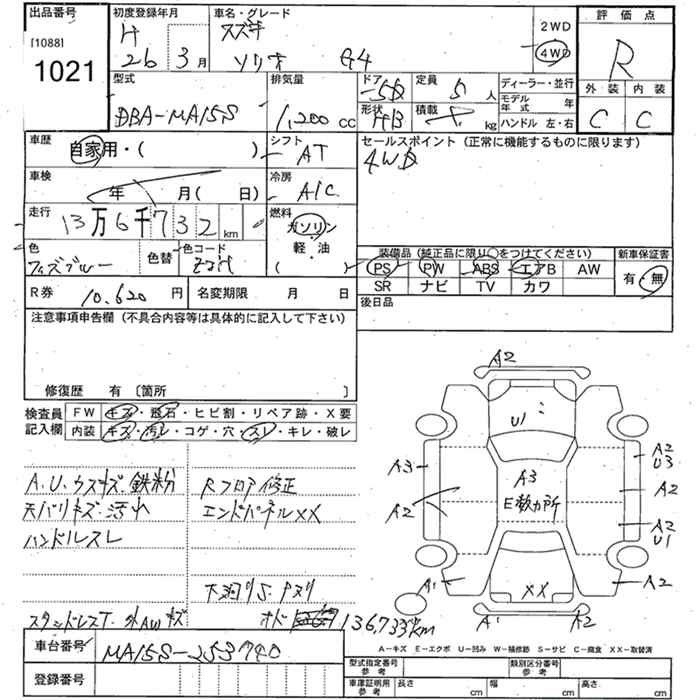 出品番号
[1088]
1021
初度登録年月
H
26 3月
車名・グレード
スズキ
ソリオ G4
2WD
4WD
評価点
R
外装 内装
C C
型式
DBA-MA15S
排気量
1,200 cc
ドア
5D
形状
HB
定員
5 人
積載
kg
ディーラー・並行
モデル年式 年
ハンドル 左・右
車歴
自家用・( )
シフト
AT
セールスポイント (正常に機能するものに限ります)
4WD
車検
年 月( 日)
冷房
A/C
走行
13万6千732 km
燃料
ガソリン
軽・油
( )
色
色替
色コード
装備品 (純正品に限り○をつけてください)
新車保証書
PS PW ABS エアB AW
SR ナビ TV カワ
有・無
R券 10,620 円
名変期限 月 日
後日品
注意事項申告欄 (不具合内容等は具体的に記入して下さい)
修復歴 有〔箇所 〕
検査員記入欄
FW キズ・飛石・ヒビ割・リペア跡・X要
内装 キズ・汚レ・コゲ・穴・スレ・キレ・破レ
A.U.ウスキズ.鉄粉
天バリキズ.汚れ
ハンドルスレ
Rフロア修正
エンドパネルXX
下廻りS.Pヌリ
スタッドレスT.外AWキズ
オド 136,733km
A2
U1
A3
A3
E数カ所
A2
A2
U3
A2
A2
U1
A1
XX
A2
A1
A2
A-キズ E-エクボ U-凹み W-補修跡 S-サビ C-腐食 XX-取替済
車台番号
MA15S-253740
登録番号
型式指定番号
参考
類別区分番号
参考
車庫証明用
参考
長さ cm
幅 cm
高さ cm